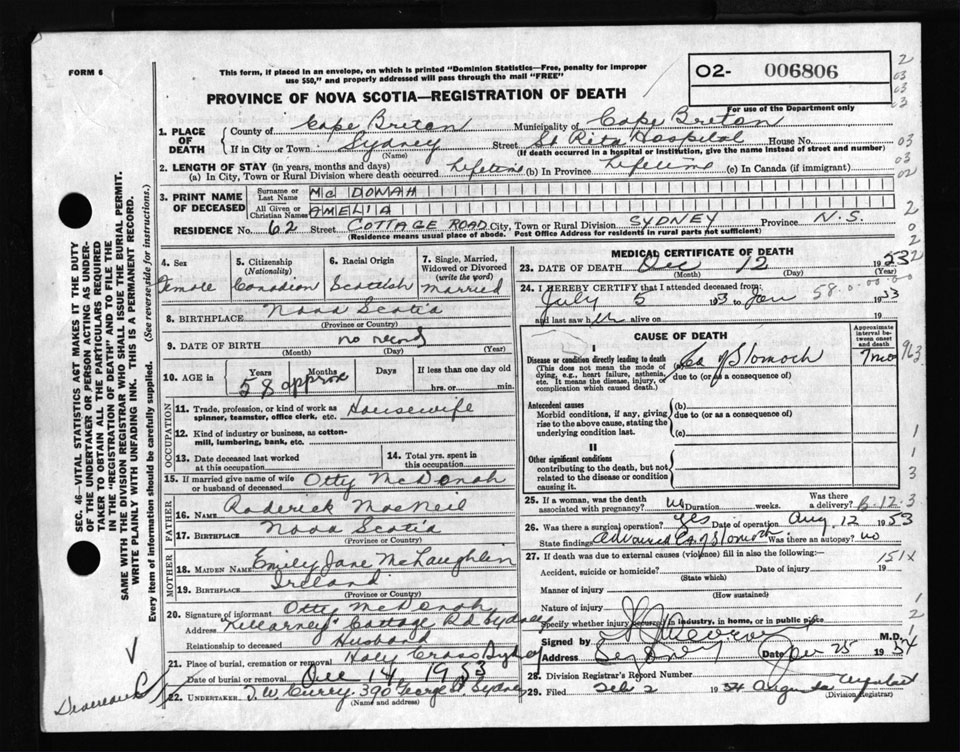 FORM 6
This form, if placed in an envelope, on which is printed "Dominion Statistics—Free, penalty for improper
use $50," and properly addressed will pass through the mail "FREE"
O2- 006806
For use of the Department only
PROVINCE OF NOVA SCOTIA—REGISTRATION OF DEATH
1. PLACE OF DEATH { County of Cape Breton Municipality of Cape Breton
If in City or Town Sydney Street St Rita Hospital House No.
(Name) (If death occurred in a hospital or institution, give the name instead of street and number)
2. LENGTH OF STAY (in years, months and days)
(a) In City, Town or Rural Division where death occurred Lifetime (b) In Province Lifetime (c) In Canada (if immigrant)
3. PRINT NAME OF DECEASED { Surname or Last Name McDONAH
All Given or Christian Names AMELIA
RESIDENCE No. 62 Street COTTAGE ROAD City, Town or Rural Division SYDNEY Province N.S.
(Residence means usual place of abode. Post Office Address for residents in rural parts not sufficient)
4. Sex Female
5. Citizenship (Nationality) Canadian
6. Racial Origin Scottish
7. Single, Married, Widowed or Divorced (write the word) Married
8. BIRTHPLACE Nova Scotia
(Province or Country)
9. DATE OF BIRTH no record
(Month) (Day) (Year)
10. AGE in { Years Months Days If less than one day
58 approx hrs. or min.
OCCUPATION
11. Trade, profession, or kind of work as spinner, teamster, office clerk, etc. Housewife
12. Kind of industry or business, as cotton-mill, lumbering, bank, etc.
13. Date deceased last worked at this occupation
14. Total yrs. spent in this occupation
15. If married give name of wife or husband of deceased Otty McDonah
FATHER
16. NAME Roderick MacNeil
17. BIRTHPLACE Nova Scotia
(Province or Country)
MOTHER
18. MAIDEN NAME Emily Jane McLaughlin
19. BIRTHPLACE Ireland
(Province or Country)
20. Signature of informant Otty McDonah
Address "Killearney" Cottage Rd Sydney
Relationship to deceased Husband
21. Place of burial, cremation or removal Holy Cross Sydney
Date of burial or removal Dec 14, 1953
22. UNDERTAKER T. W. Curry 390 George St Sydney
(Name and address)
MEDICAL CERTIFICATE OF DEATH
23. DATE OF DEATH Dec 12 1953
(Month) (Day)
24. I HEREBY CERTIFY that I attended deceased from:
July 5 1953 to Jan 1953
and last saw her alive on 19
CAUSE OF DEATH
Approximate interval between onset and death
I
Disease or condition directly leading to death Ca of Stomach 7 mo
(This does not mean the mode of dying, e.g., heart failure, asthenia, etc. It means the disease, injury, or complication which caused death.)
due to (or as a consequence of)
Antecedent causes
Morbid conditions, if any, giving rise to the above cause, stating the underlying condition last.
(b)
due to (or as a consequence of)
(c)
II
Other significant conditions
contributing to the death, but not related to the disease or condition causing it.
25. If a woman, was the death associated with pregnancy? no Duration weeks. Was there a delivery?
26. Was there a surgical operation? yes Date of operation Aug 12 1953
State findings Advanced Ca of Stomach Was there an autopsy? no
27. If death was due to external causes (violence) fill in also the following:—
Accident, suicide or homicide? Date of injury 19
(State which)
Manner of injury
(How sustained)
Nature of injury
Specify whether injury occurred in industry, in home, or in public place
Signed by M.D.
Address Sydney Date Jan 25 1954
28. Division Registrar's Record Number
29. Filed Feb 2 1954
(Division Registrar)
SEC. 46—VITAL STATISTICS ACT MAKES IT THE DUTY
OF THE UNDERTAKER OR PERSON ACTING AS UNDER-
TAKER TO OBTAIN ALL THE PARTICULARS REQUIRED
IN THE "REGISTRATION OF DEATH" AND TO FILE THE
SAME WITH THE DIVISION REGISTRAR WHO SHALL ISSUE THE BURIAL PERMIT.
WRITE PLAINLY WITH UNFADING INK. THIS IS A PERMANENT RECORD.
Every item of information should be carefully supplied. (See reverse side for instructions.)